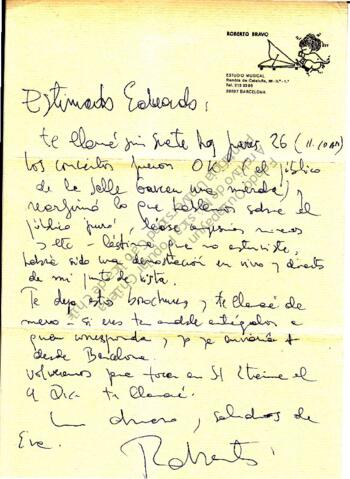 ROBERTO BRAVO
ESTUDIO MUSICAL
Rambla de Cataluña,
BARCELONA
Estimado Eduardo:
te llamé sin suerte hoy jueves 26 (11.10 AM)
Los conciertos fueron O.K. (el público
de la Salle una merda)
lo que hablamos sobre el
público
y etc - lástima que no estuviste,
habría sido una demostración en vivo y directo
de mi punto de vista.
Te dejo estos brochures, y te llamaré de
nuevo - si eres tan amable entrégalos a
quien corresponda, y yo enviaré +
desde Barcelona.
Volveremos para tocar en St Etienne el
4 Dic. te llamaré.
Un abrazo, saludos de
Eva.
Roberto